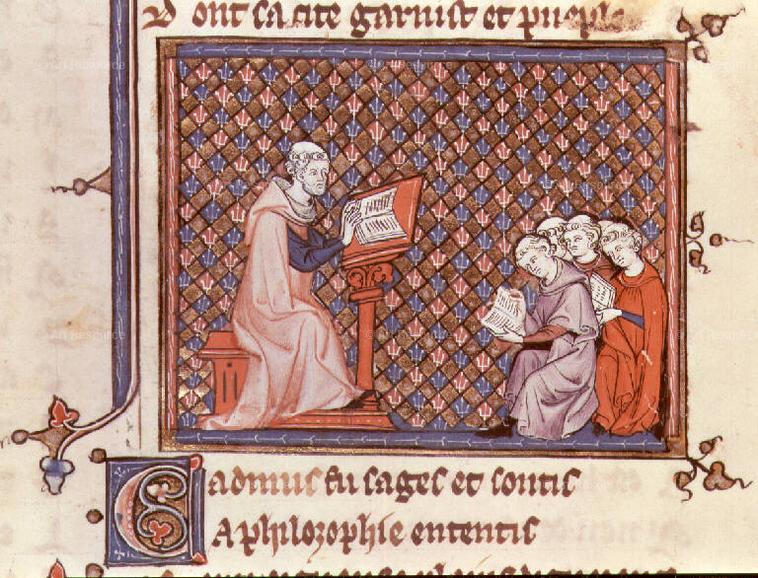 D ont sa cite garnist et pueple
Cadmus fu sages et soutis
A philozophie ententis